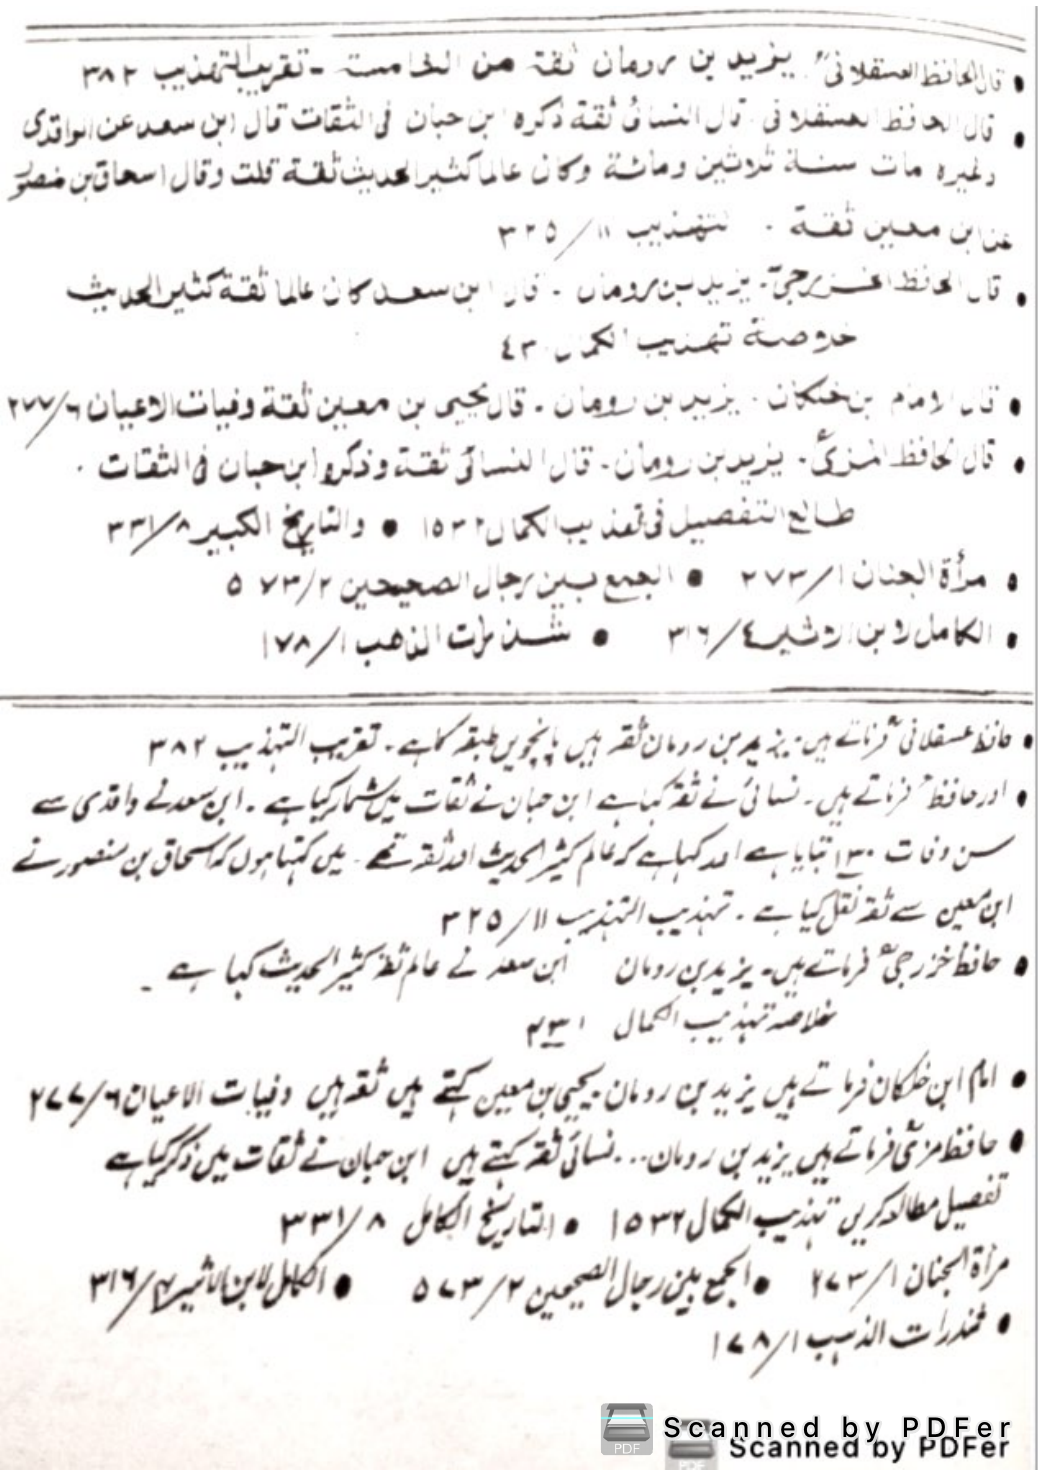 • قال الحافظ العسقلانیؒ. یزید بن رومان ثقة من الخامسة - تقریب التہذیب ۳۸۲
• قال الحافظ العسقلانی. قال النسائی ثقة ذکره ابن حبان فی الثقات قال ابن سعد عن الواقدی
وغیره مات سنة ثلاثین ومائة وکان عالما کثیر الحدیث ثقة قلت وقال اسحاق بن منصور
عن ابن معین ثقة . تہذیب ۱۱/۳۲۵
• قال الحافظ الخزرجیؒ - یزید بن رومان . قال ابن سعد کان عالما ثقة کثیر الحدیث
خلاصة تہذیب الکمال
• قال الامام بن خلکان . یزید بن رومان . قال یحیی بن معین ثقة وفیات الاعیان ۶/۲۷۷
• قال الحافظ المزیؒ . یزید بن رومان . قال النسائی ثقة وذکره ابن حبان فی الثقات .
طالع التفصیل فی تہذیب الکمال ۱۵۳۲ • والتاریخ الکبیر ۸/۳۳۱
• مرأة الجنان ۱/۲۷۳ • الجمع بین رجال الصحیحین ۲/۵۷۳
• الکامل لابن الاثیر ٤/۳۱۶ • شذرات الذهب ۱/۱۷۸
• حافظ عسقلانیؒ فرماتے ہیں - یزید بن رومان ثقہ ہیں پانچویں طبقہ کا ہے - تقریب التہذیب ۳۸۲
• اور حافظؒ فرماتے ہیں - نسائی نے ثقہ کہا ہے ابن حبان نے ثقات میں شمار کیا ہے - ابن سعد نے واقدی سے
سن وفات ۱۳۰ بتایا ہے اور کہا ہے کہ عالم کثیر الحدیث اور ثقہ تھے - میں کہتا ہوں کہ اسحاق بن منصور نے
ابن معین سے ثقہ نقل کیا ہے - تہذیب التہذیب ۱۱/۳۲۵
• حافظ خزرجیؒ فرماتے ہیں - یزید بن رومان ابن سعد نے عالم ثقہ کثیر الحدیث کہا ہے -
خلاصہ تہذیب الکمال ۴۳۱
• امام ابن خلکان فرماتے ہیں یزید بن رومان - یحیی بن معین کہتے ہیں ثقہ ہیں وفیات الاعیان ۶/۲۷۷
• حافظ مزیؒ فرماتے ہیں یزید بن رومان... نسائی ثقہ کہتے ہیں ابن حبان نے ثقات میں ذکر کیا ہے
تفصیل مطالعہ کریں تہذیب الکمال ۱۵۳۲ • التاریخ الکامل ۸/۳۳۱
مرأة الجنان ۱/۲۷۳ • الجمع بین رجال الصحیحین ۲/۵۷۳ • الکامل لابن الاثیر ۴/۳۱۶
• شذرات الذہب ۱/۱۷۸
Scanned by PDFer
Scanned by PDFer